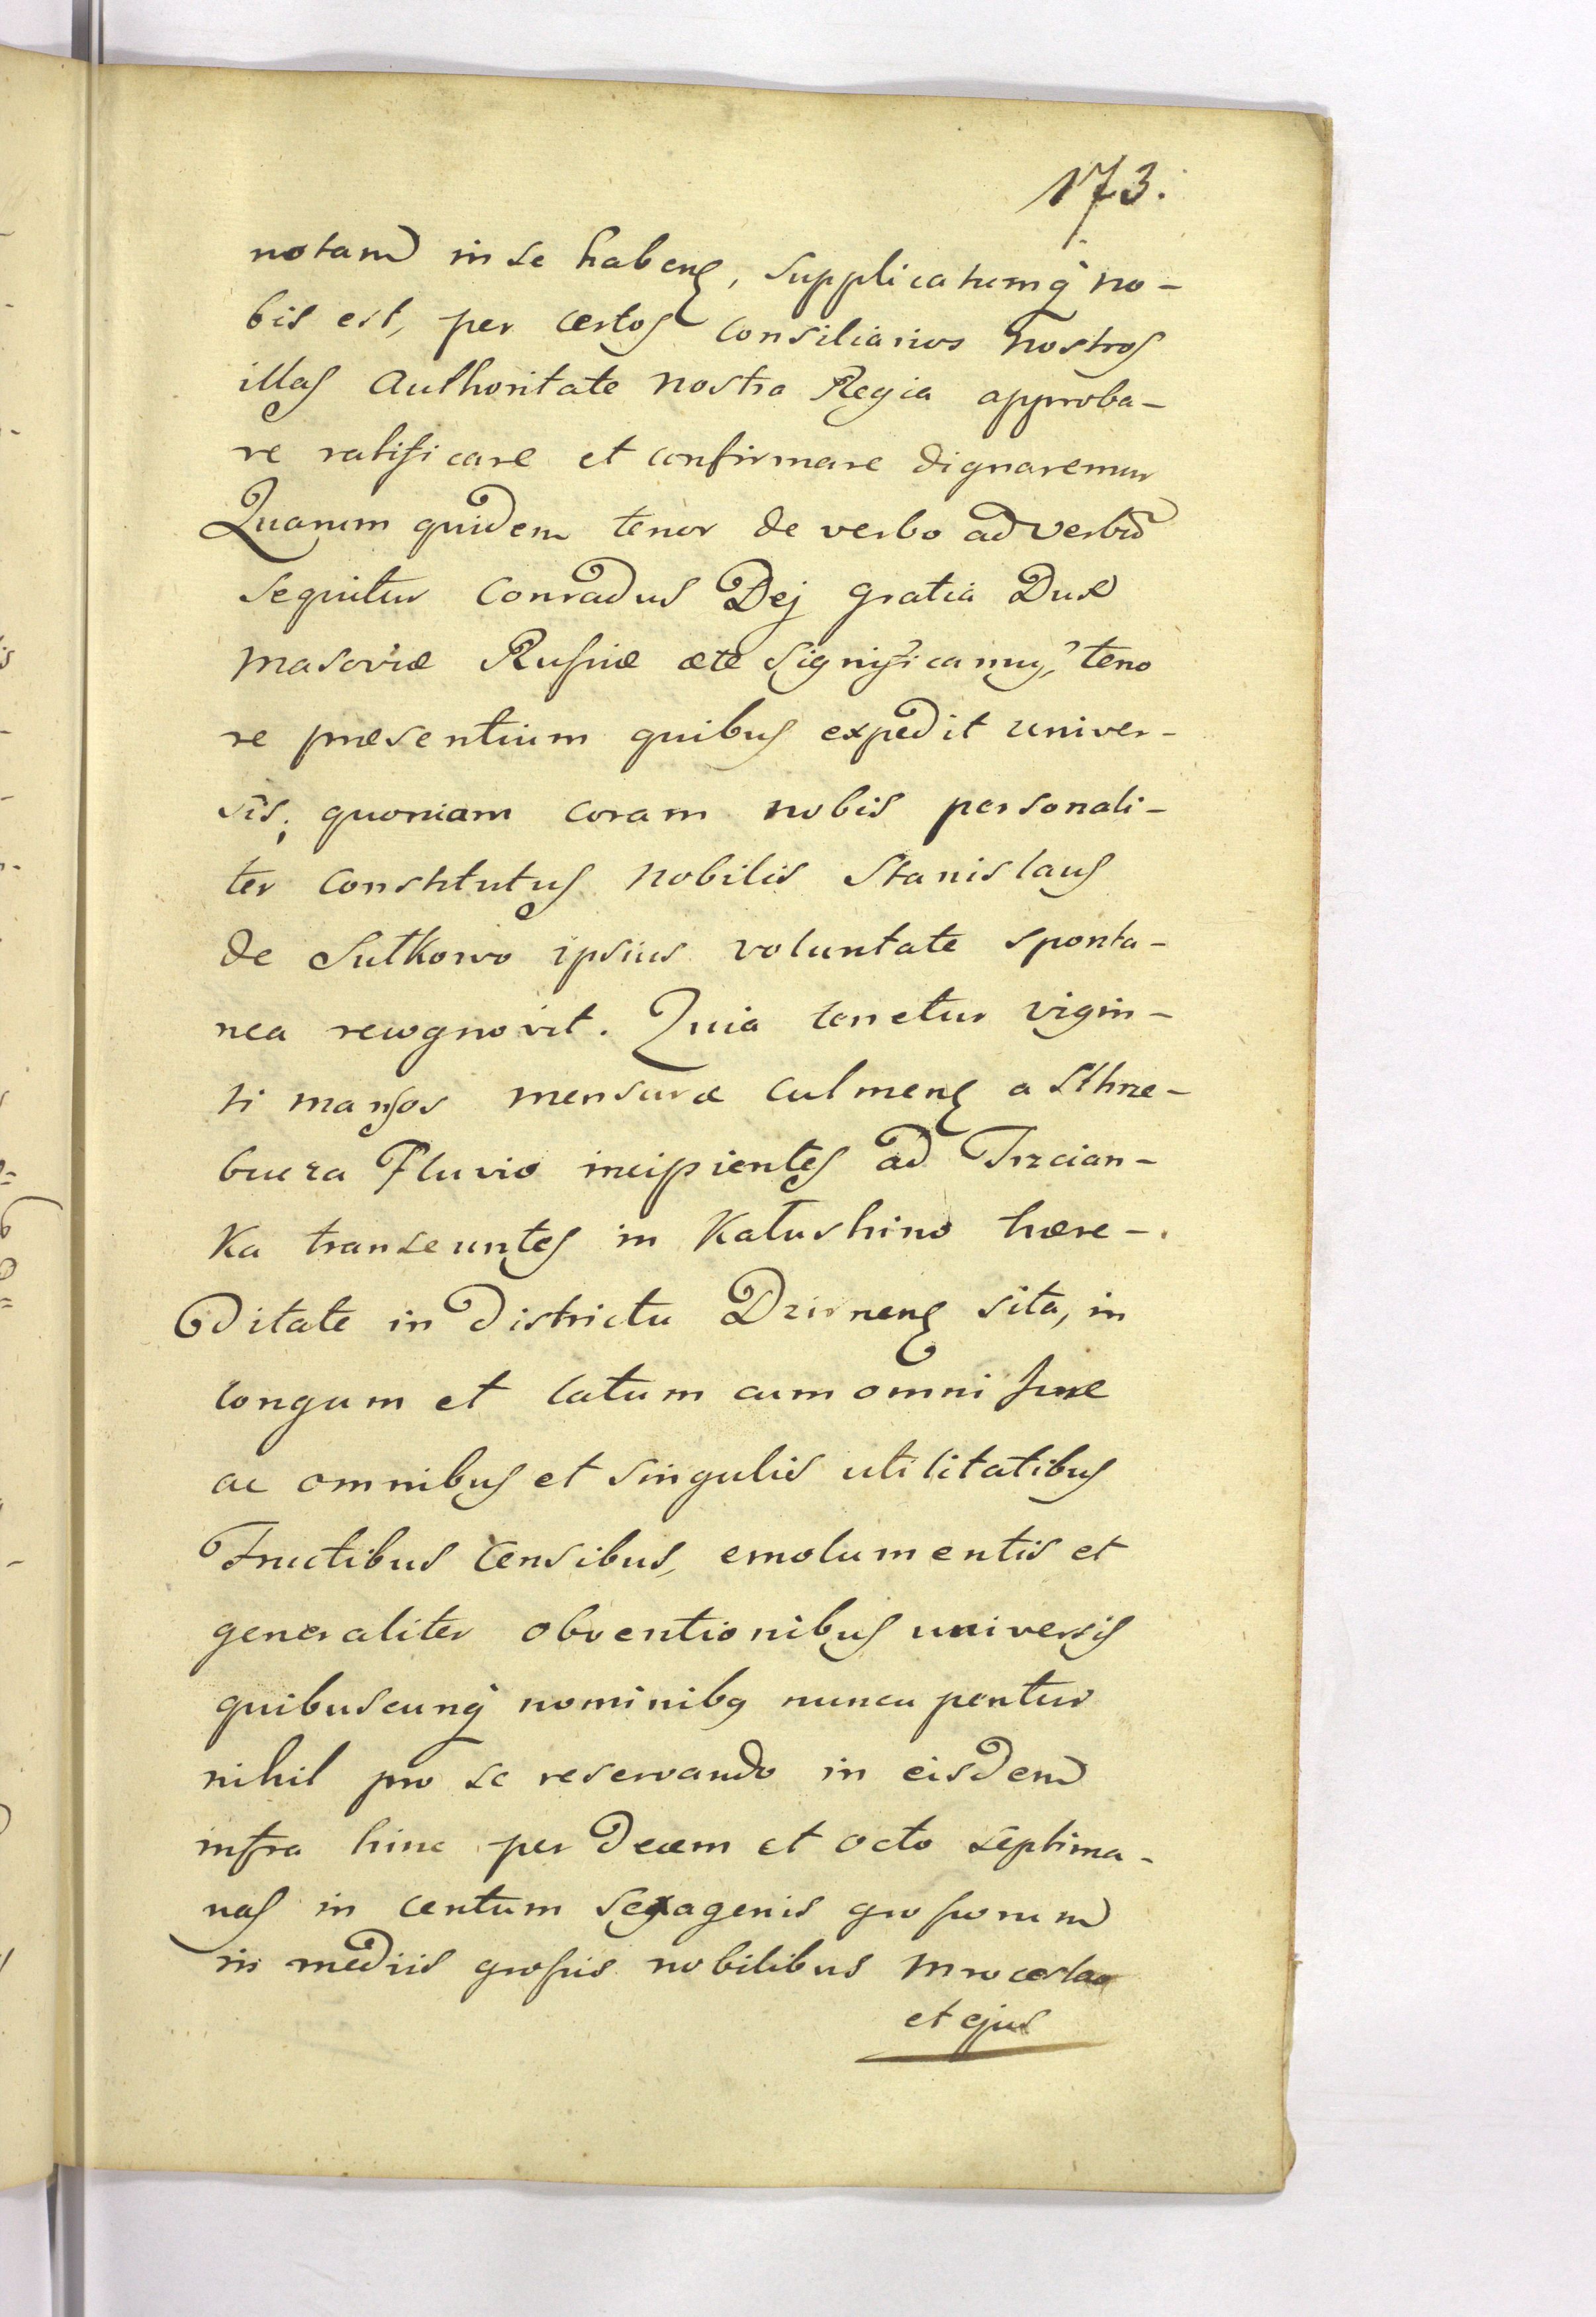 173.
notam in se habens, supplicatumq no-
bis est, per certos consiliarios nostros
illas Authoritate nostra Regia approba-
re ratificare et confirmare dignaremur
Quarum quidem tenor de verbo ad verbū
sequitur Conradus Dej gratia Dux
Masoviæ Russiæ ætc significamus, teno
re præsentium quibus expedit univer-
sis; quoniam coram nobis personali-
ter constitutus nobilis Stanislaus
de Sutkowo ipsius voluntate sponta-
nea recognovit. Quia tenetur vigin-
ti mansos mensuræ culmens a Sthre-
bucza Fluvio incipientes ad Trzcian-
ka transeuntes in Katushino hære-
ditate in districtu Dzirnens sita, in
longum et latum cum omni jure
ac omnibus et singulis utilitatibus
Fructibus censibus, emolumentis et
generaliter obventionibus universis
quibuscunq nominibq nuncupentur
nihil pro se reservando in eisdem
infra hinc per decem et octo septima-
nas in centum sexagenis grossorum
in mediis grossis nobilibus Mroceslao
et ejus